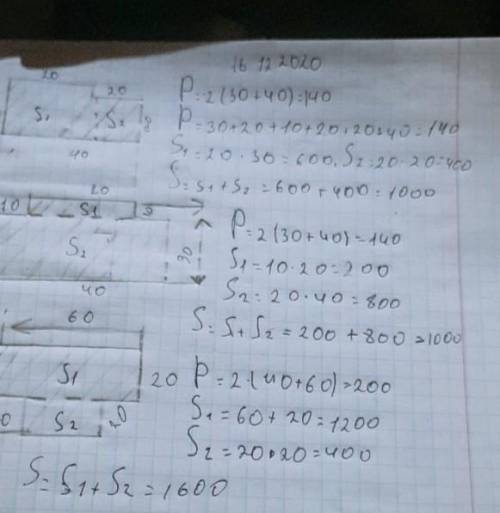 16 12 2020
20
20
P=2(30+40)=140
S1
S2
P=30+20+10+20+20+40=140
40
S1=20·30=600. S2=20·20=400
S=S1+S2=600+400=1000
20
10
S1
P=2(30+40)=140
S2
30
S1=10·20=200
40
S2=20·40=800
S=S1+S2=200+800=1000
60
S1
20
P=2·(40+60)=200
S1=60+20=1200
S2
20
S2=20·20=400
S=S1+S2=1600